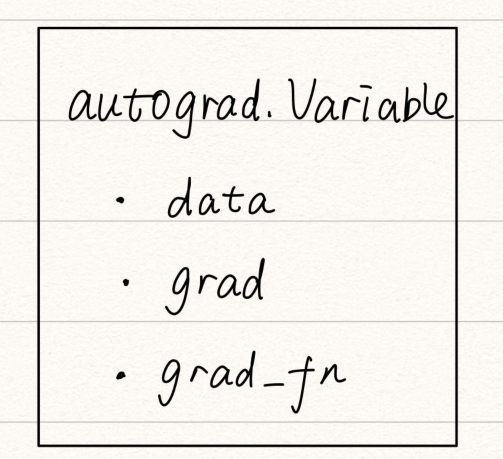 autograd. Variable
· data
· grad
· grad_fn